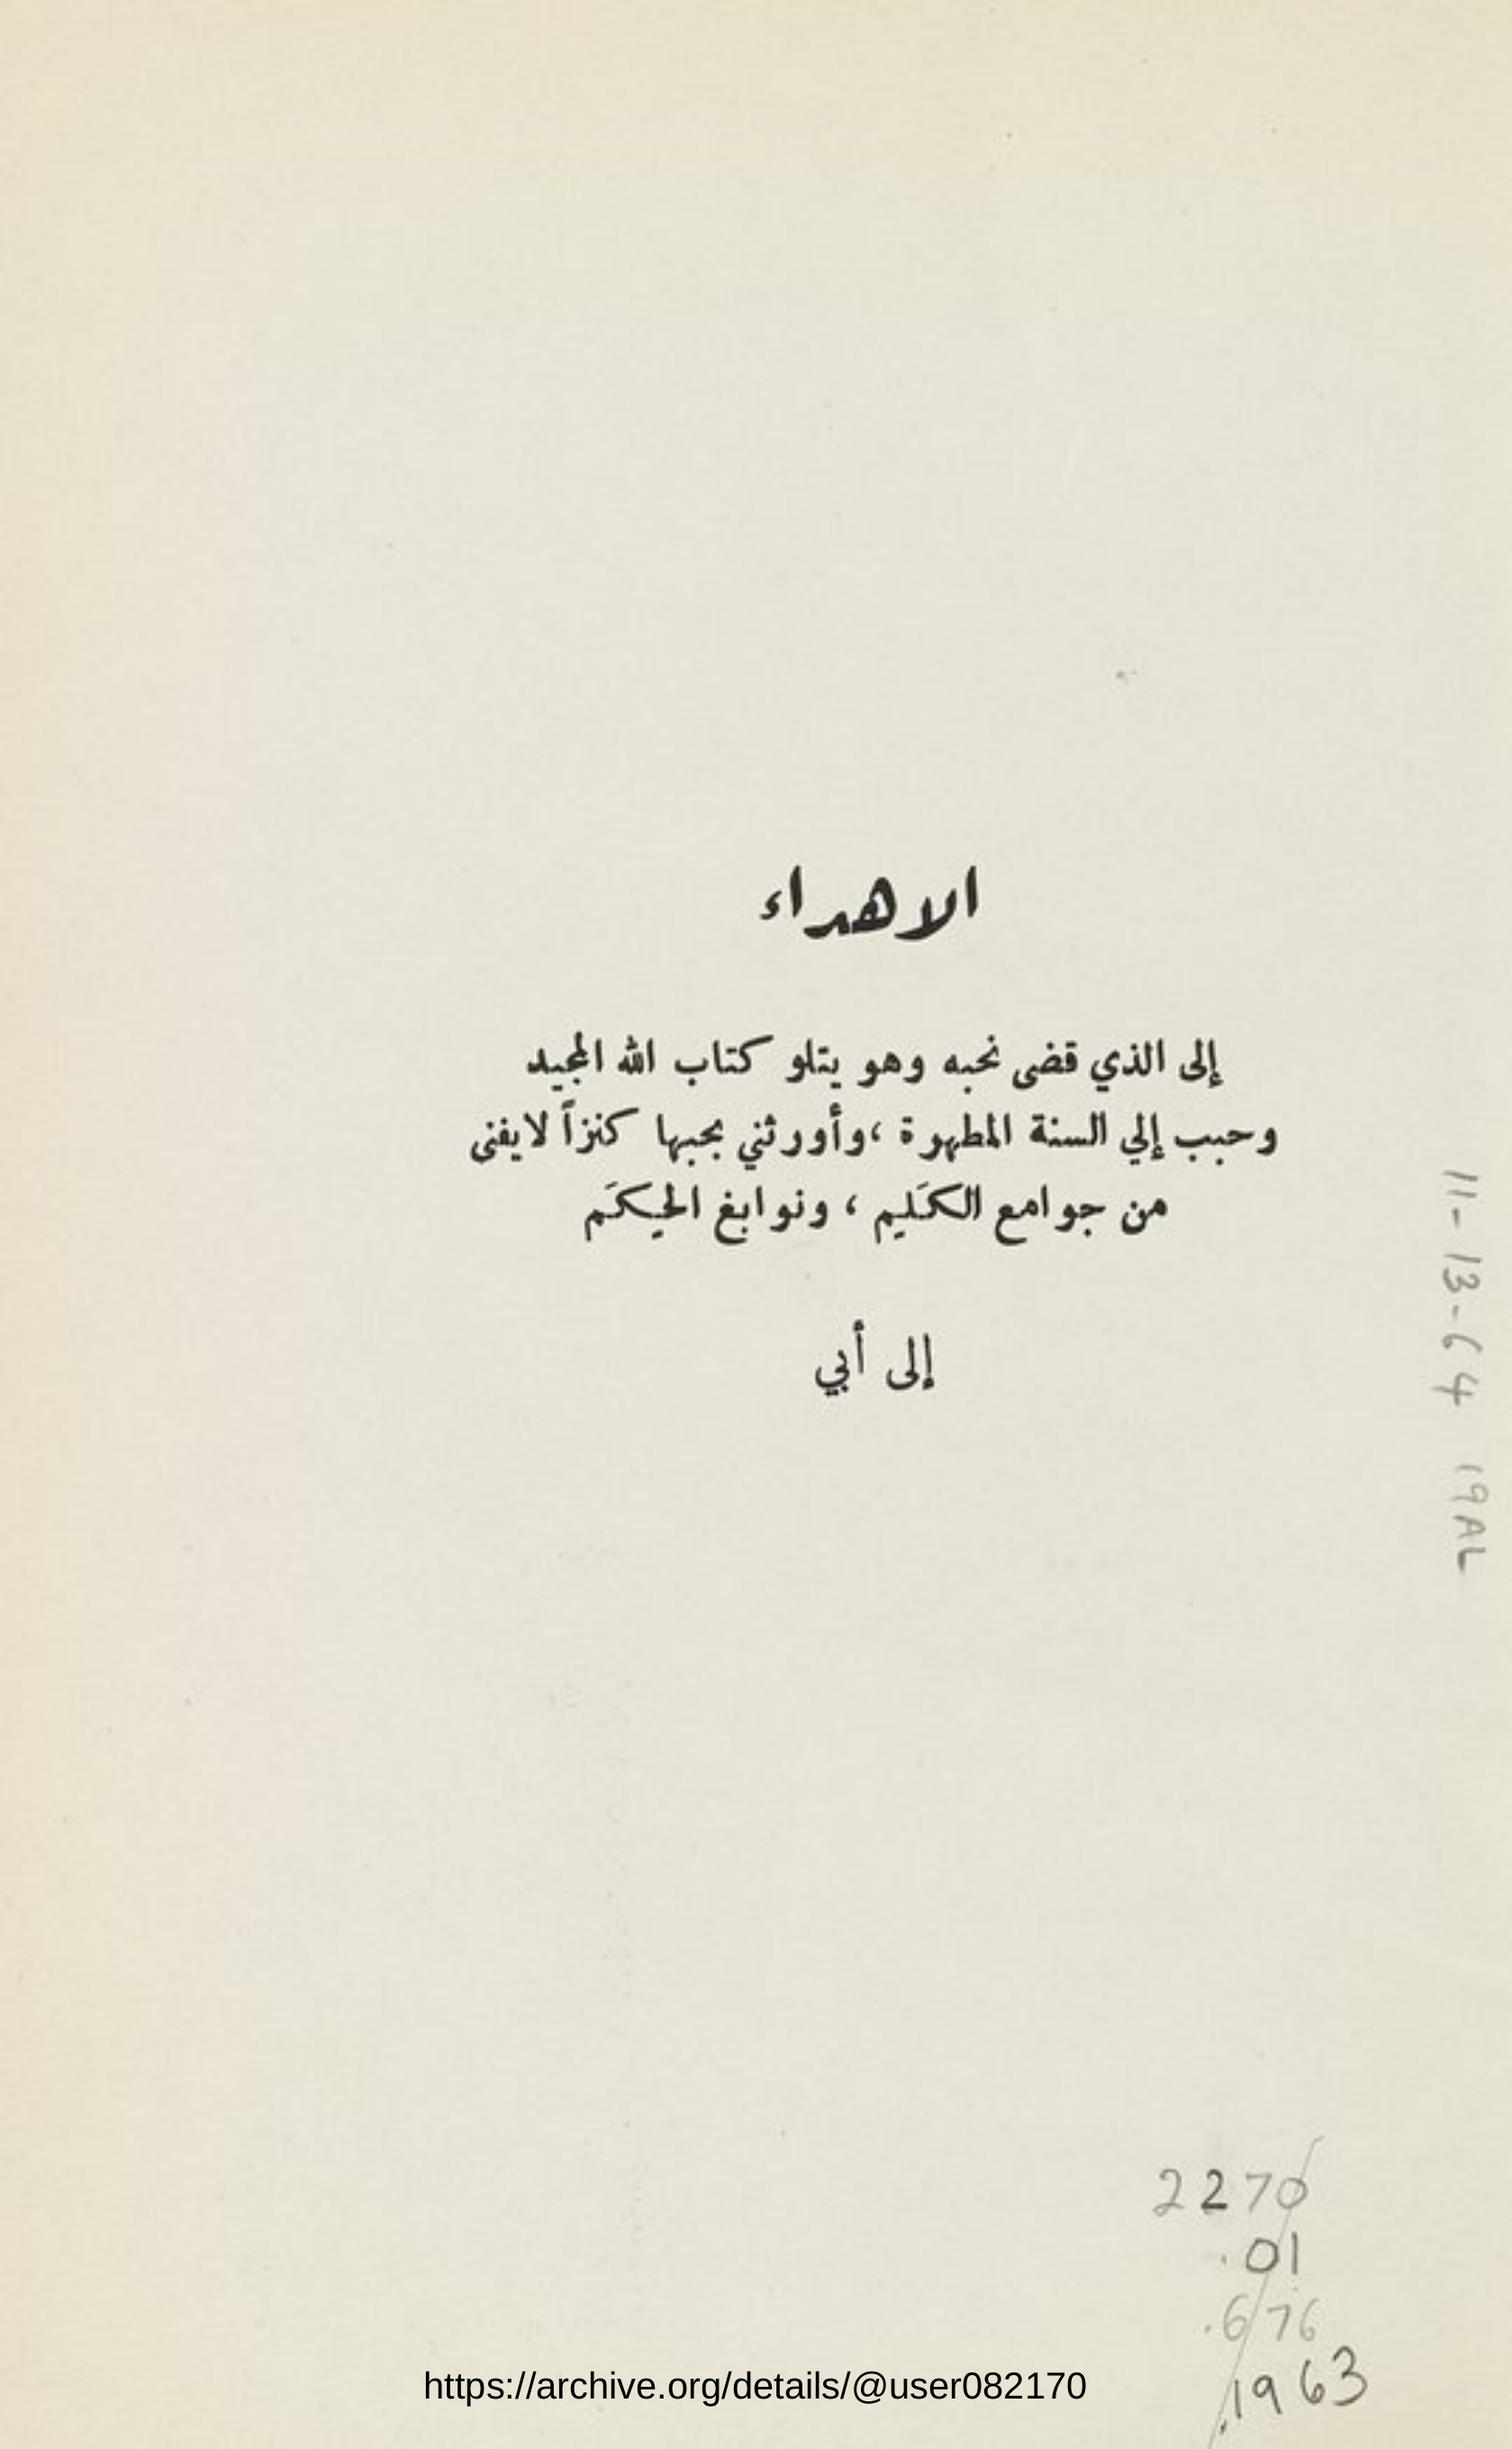 الاهداء
إلى الذي قضى نحبه وهو يتلو كتاب الله المجيد
وحبب إلي السنة المطهرة ،وأورثني بحبها كنزاً لايفنى
من جوامع الكَلِيم ، ونوابغ الحِيكَم
إلى أبي
11-13-64 19AL
2270
.01
.676
.1963
https://archive.org/details/@user082170